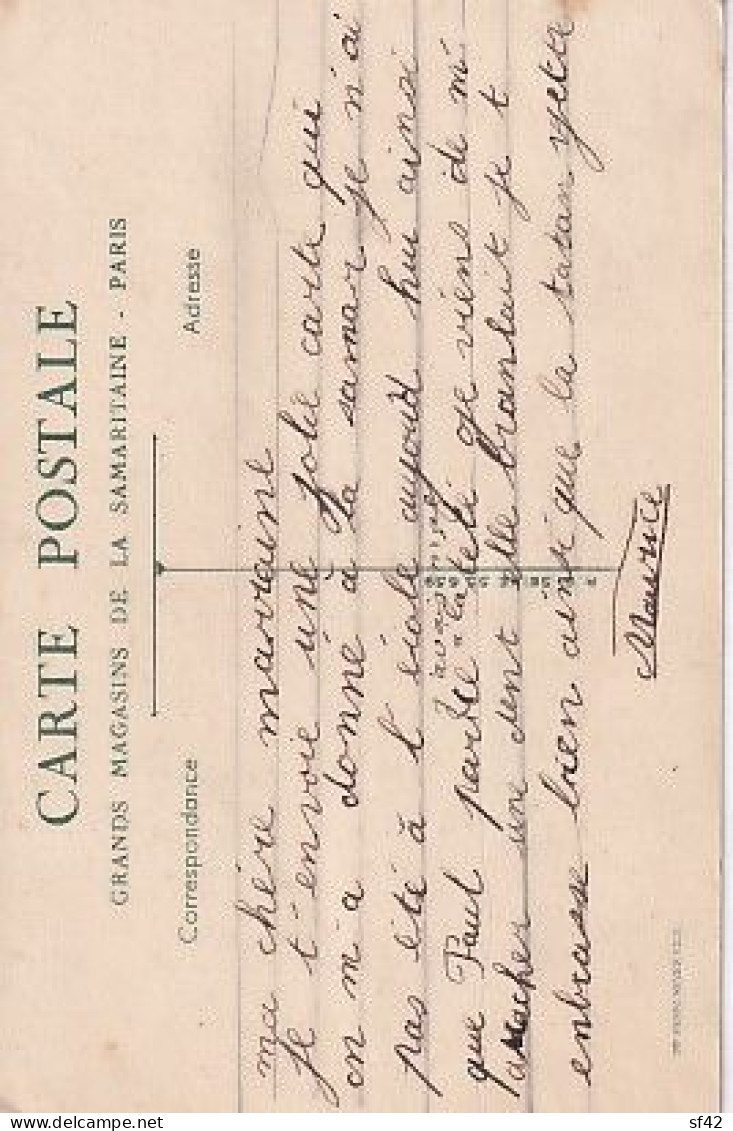 CARTE POSTALE
GRANDS MAGASINS DE LA SAMARITAINE - PARIS
Correspondance
Adresse
ma chère marraine
je t'envoie une jolie carte qui
on m'a donné à la samar je n'ai
pas été à l'école aujourd hui ainsi
que Paul parce "la télé" je viens de m
la rracher une dent elle branlait je t
enbrasse bien ainsi que la tatan yette
Maurice
R. C. SEINE
delcampe.net
sf42